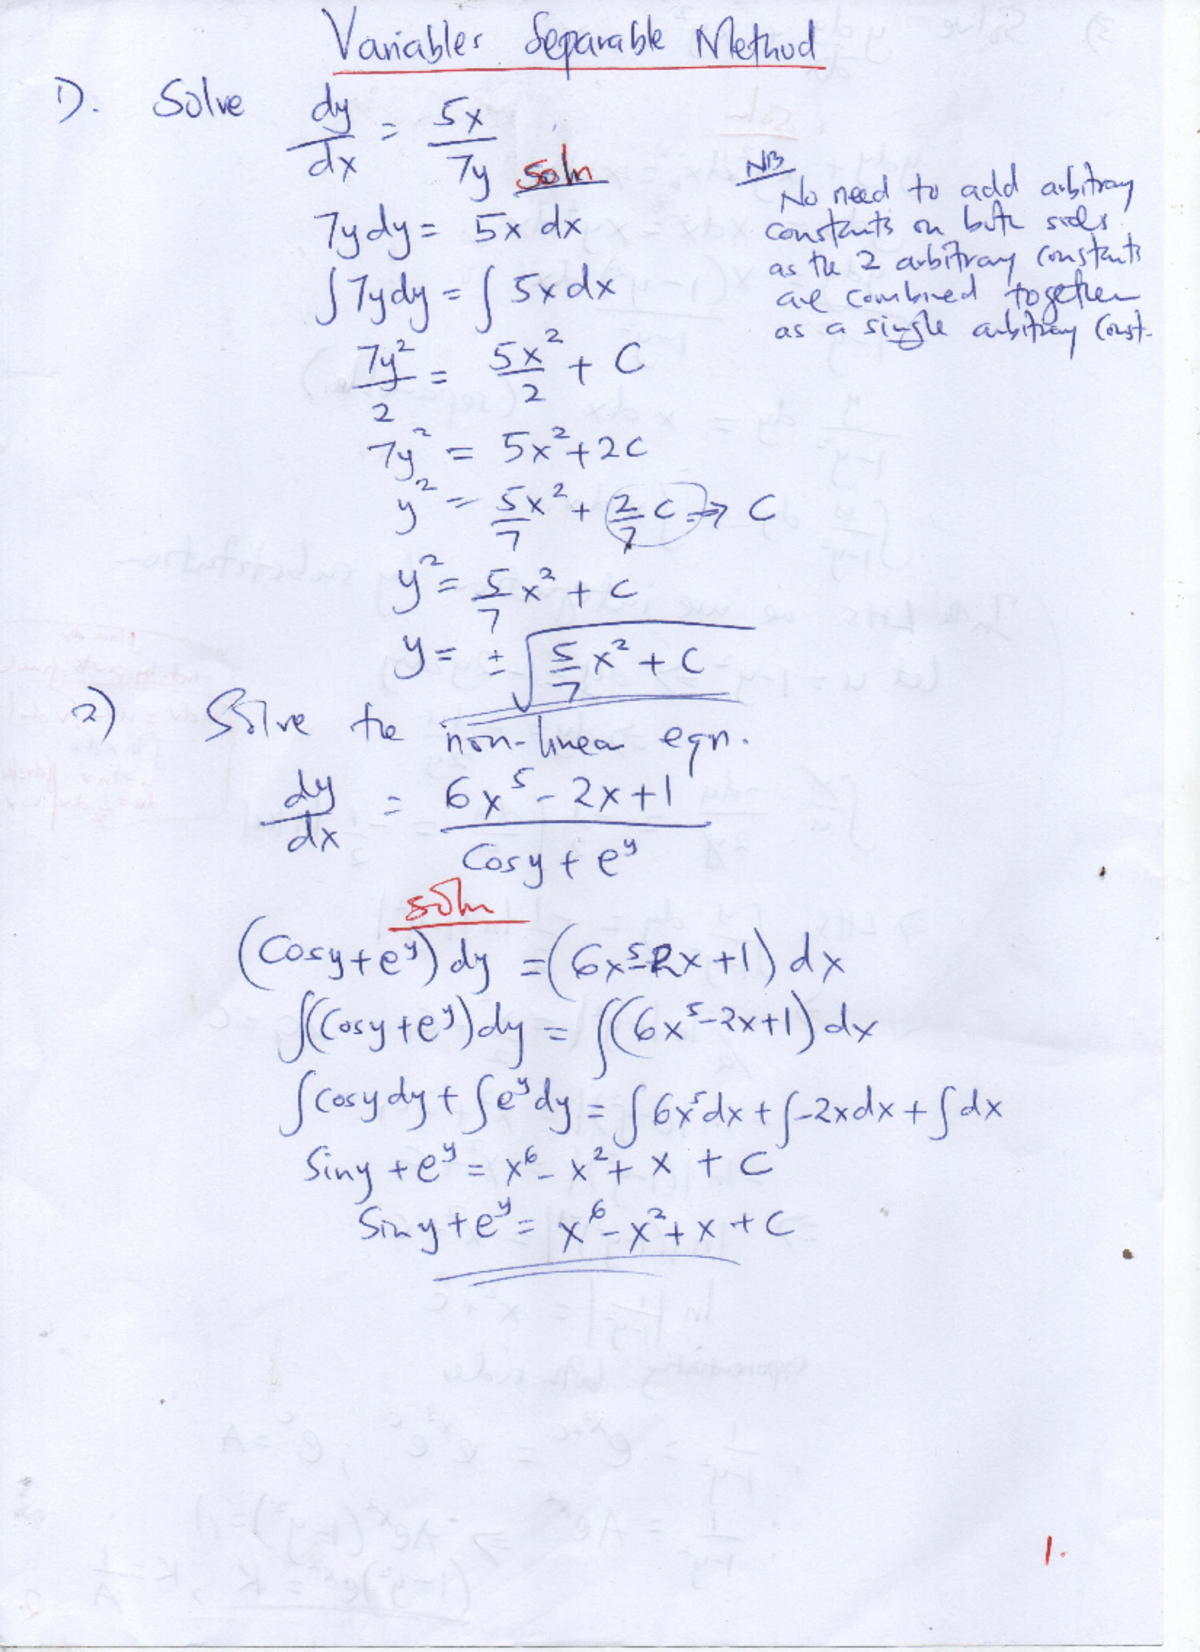 Variables Separable Method
1). Solve dy/dx = 5x/7y
Soln
7ydy = 5x dx
∫7ydy = ∫5xdx
7y²/2 = 5x²/2 + C
7y² = 5x²+2C
y² = 5/7 x² + 2/7 C ⇒ C
y² = 5/7 x² + C
y = ±√(5/7 x² + C)
NB
No need to add arbitrary
constants on both sides
as the 2 arbitrary constants
are combined together
as a single arbitrary const.
2) Solve the non-linear eqn.
dy/dx = (6x⁵ - 2x+1)/(Cosy + e^y)
soln
(Cosy+e^y)dy = (6x⁵-2x+1)dx
∫(Cosy+e^y)dy = ∫(6x⁵-2x+1)dx
∫Cosydy + ∫e^ydy = ∫6x⁵dx + ∫-2xdx + ∫dx
Siny + e^y = x⁶ - x² + x + C
Siny + e^y = x⁶ - x² + x + C
1.